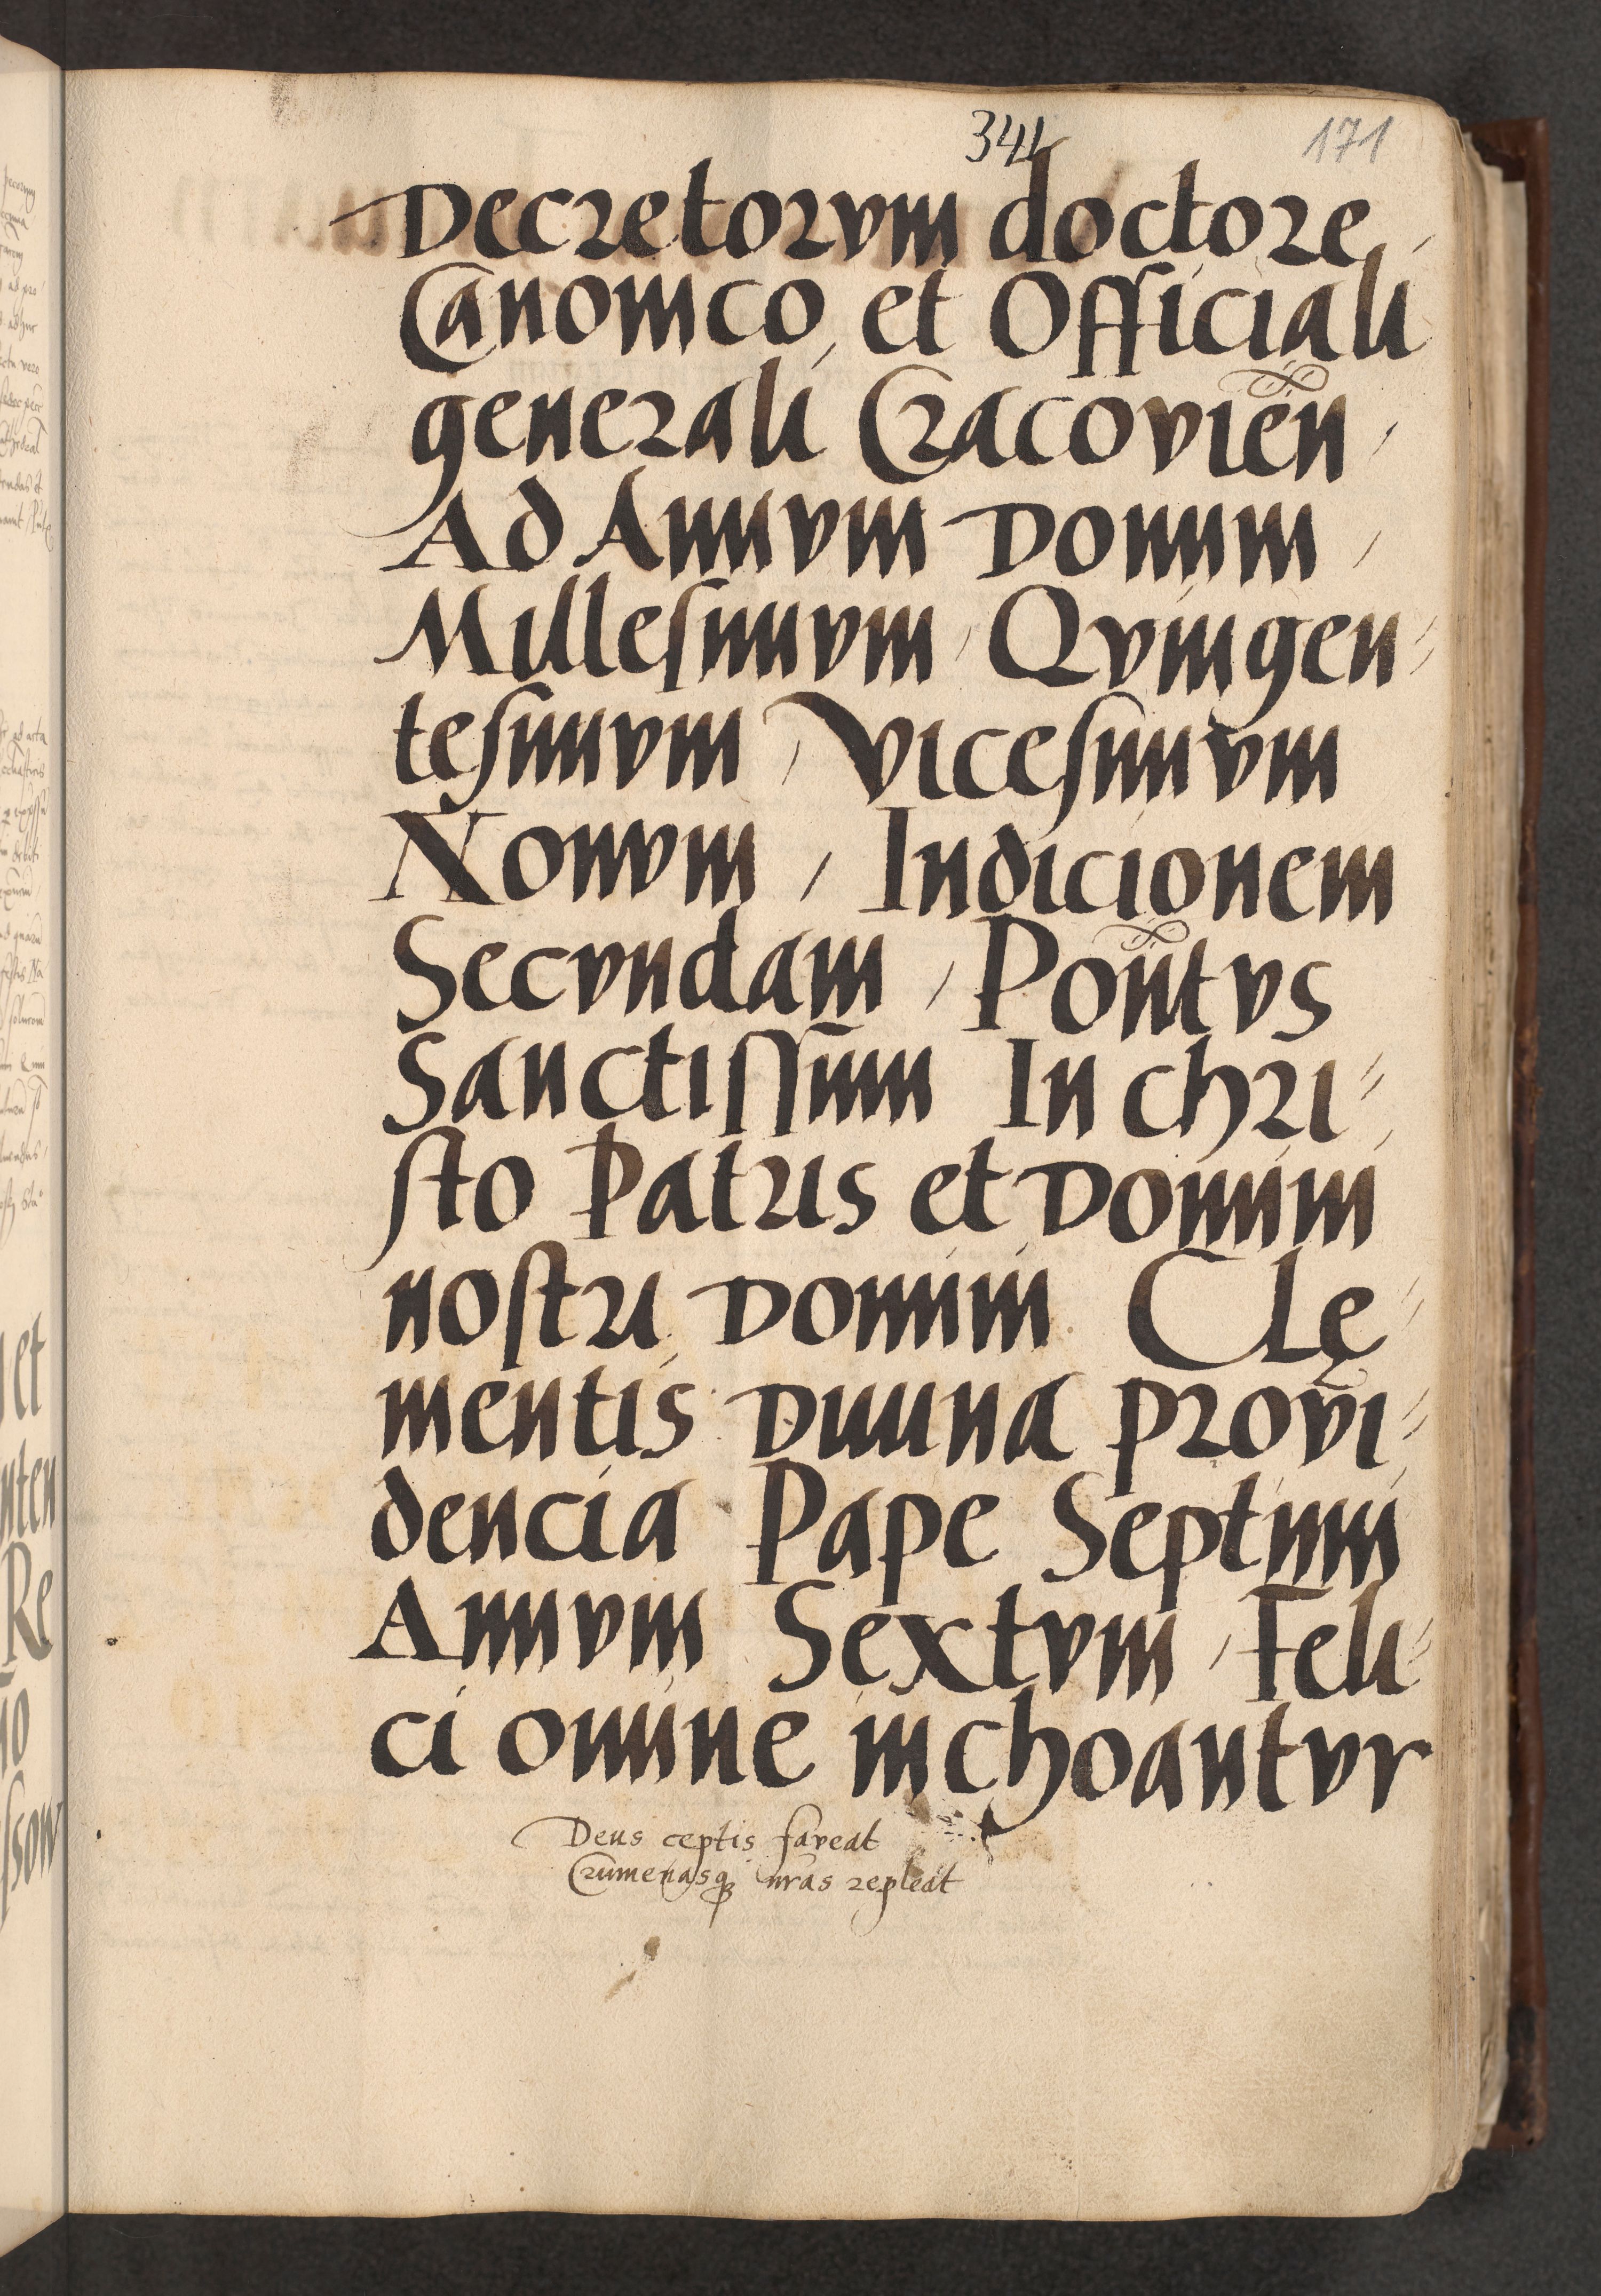 344 171
Decretorvm doctore,
Canonico et Officiali
generali Cracovien̄,
Ad Annvm Domini,
Millesimvm, Qvingen=
tesimvm, Vicesimvm
Nonvm, Indicionem
Secvndam, Pon̄tvs
Sanctissimi In chri=
sto Patris et Domini
nostri Domini Cle=
mentis Diuina provi=
dencia Pape Septimi
Annvm Sextvm, Feli=
ci omine inchoantvr
Deus ceptis faveat
Crumenasq nr̄as repleat